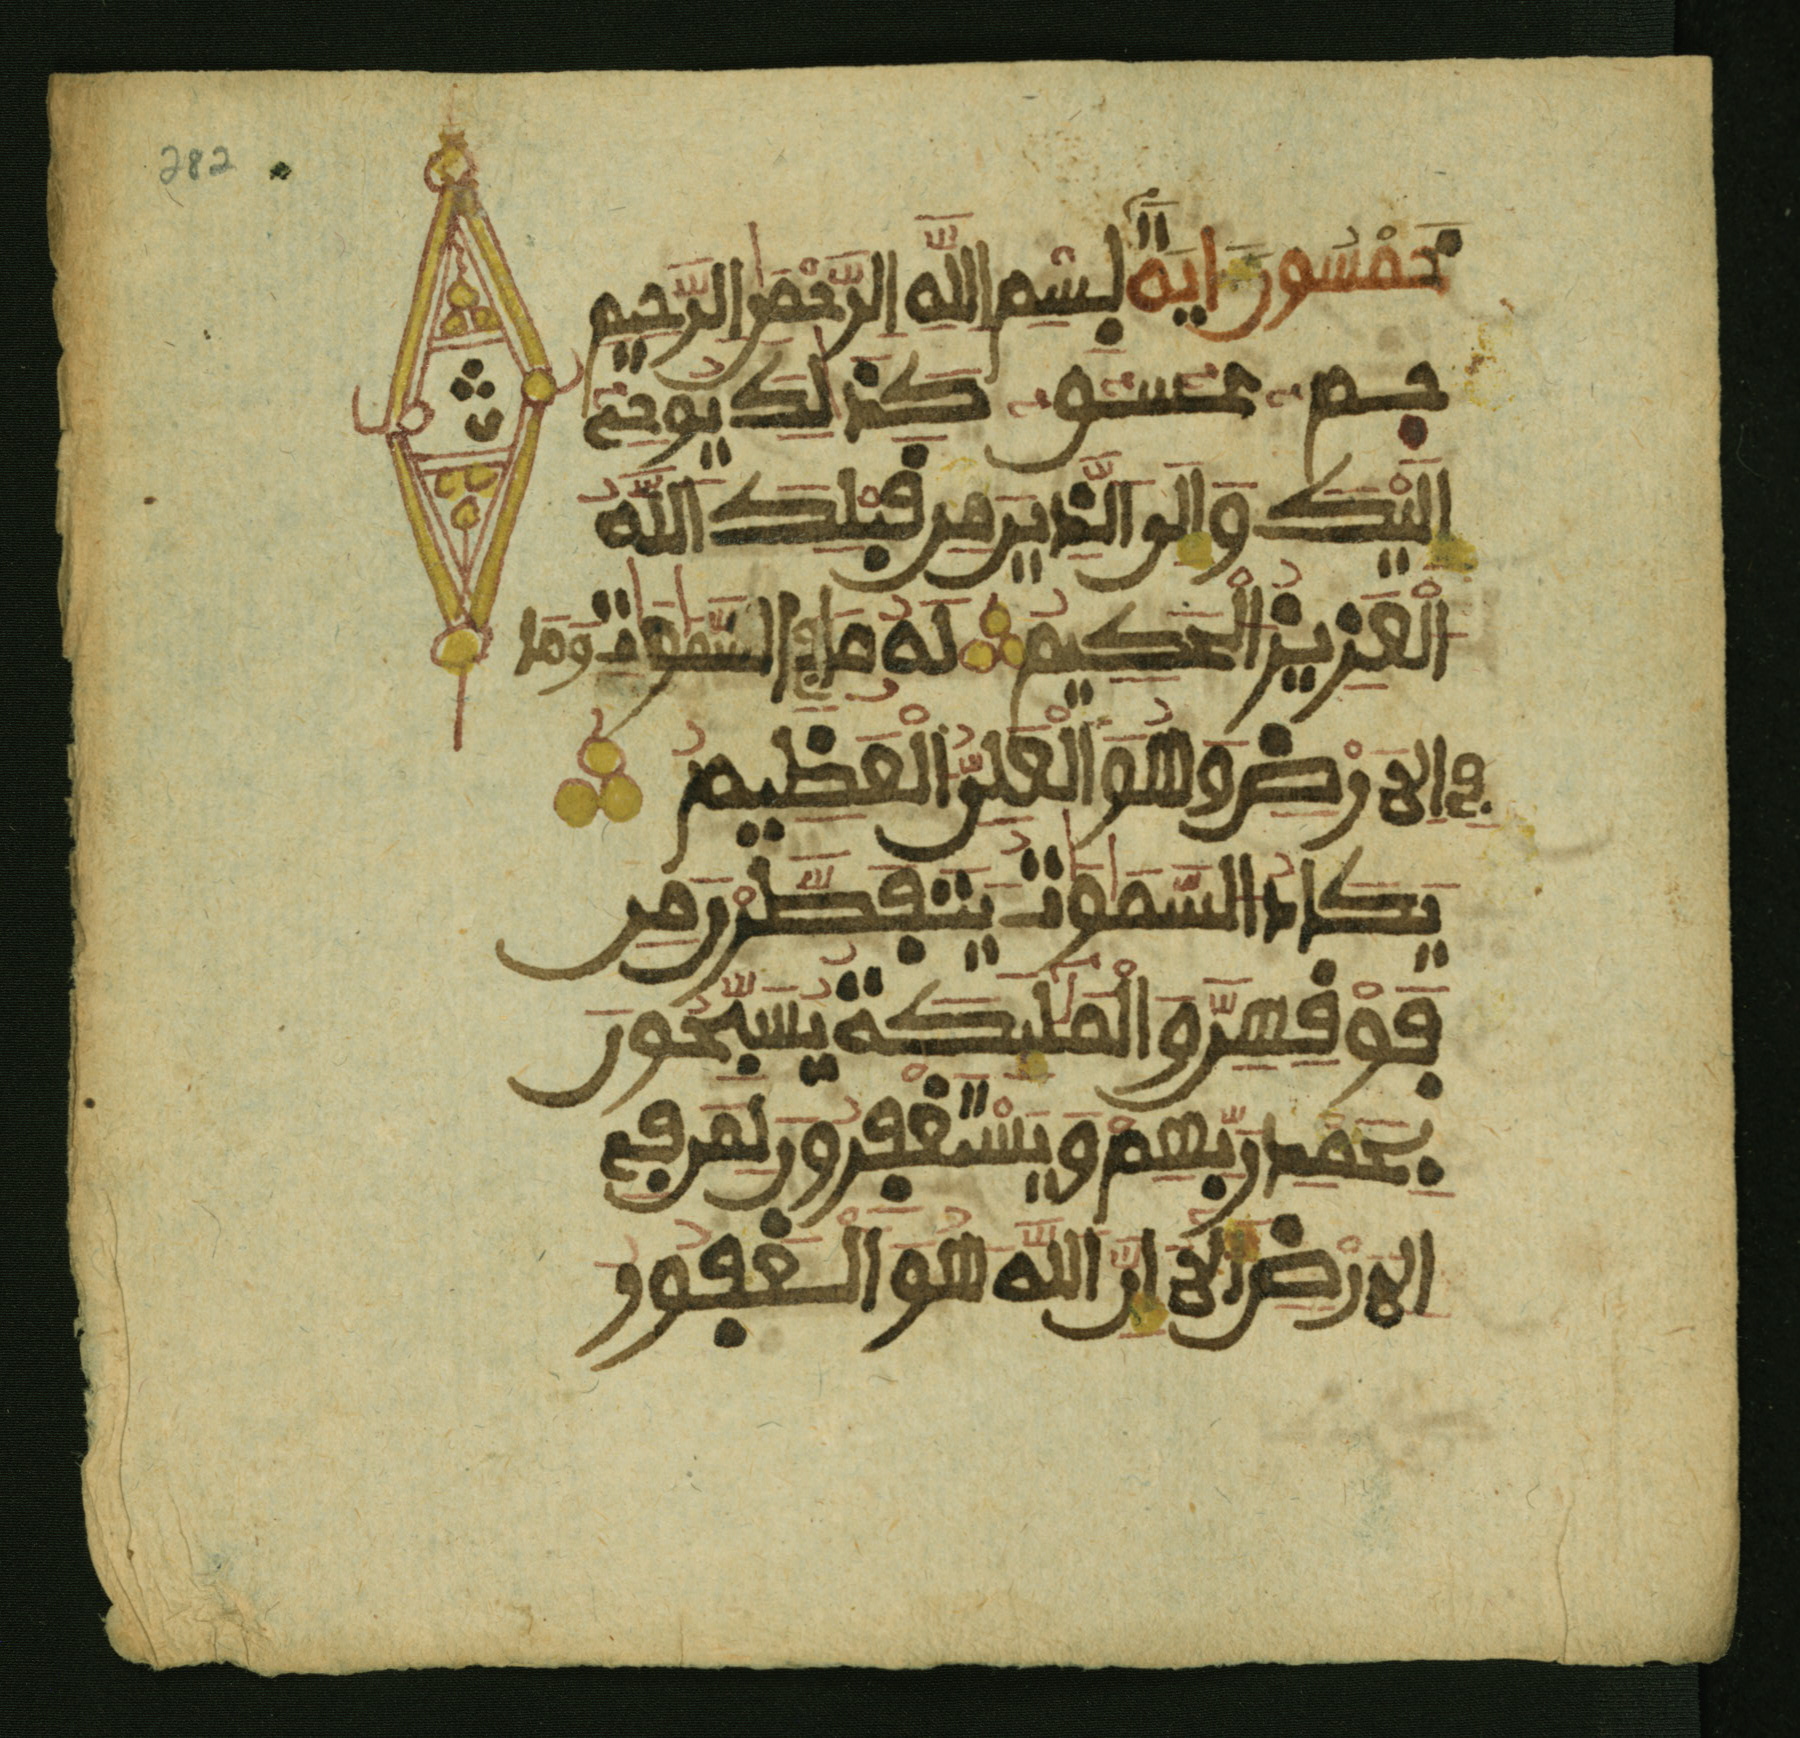 282
خَمْسُونَ ءَايَةً بِسْمِ اللَّهِ الرَّحْمَٰنِ الرَّحِيمِ
حم عسق كَذَٰلِكَ يُوحِي
إِلَيْكَ وَإِلَى الَّذِينَ مِن قَبْلِكَ اللَّهُ
الْعَزِيزُ الْحَكِيمُ لَهُ مَا فِي السَّمَٰوَٰتِ وَمَا
فِي الْأَرْضِ وَهُوَ الْعَلِيُّ الْعَظِيمُ
يَكَادُ السَّمَٰوَٰتُ يَتَفَطَّرْنَ مِن
فَوْقِهِنَّ وَالْمَلَٰئِكَةُ يُسَبِّحُونَ
بِحَمْدِ رَبِّهِمْ وَيَسْتَغْفِرُونَ لِمَن فِي
الْأَرْضِ أَلَا إِنَّ اللَّهَ هُوَ الْغَفُورُ